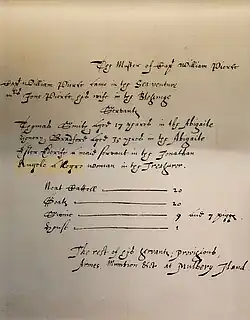 The Muster of Capt William Pierce
Capt William Pierce came in the Sea venture
mrs Jone Pierce his wife in the Blessinge
Servants
Thomas Smith aged 17 yeares in the Abigaile
Henery Bradford aged 35 yeares in the Abigaile
Ester Ederife a maid servant in the Jonathan
Angelo a Negro woman in the Treasurer.
Neat Cattell 20
Goats 20
Swine 9 and 7 piggs.
House 1
The rest of his servants, provisions,
Armes Munition &ct at Mulbery Iland